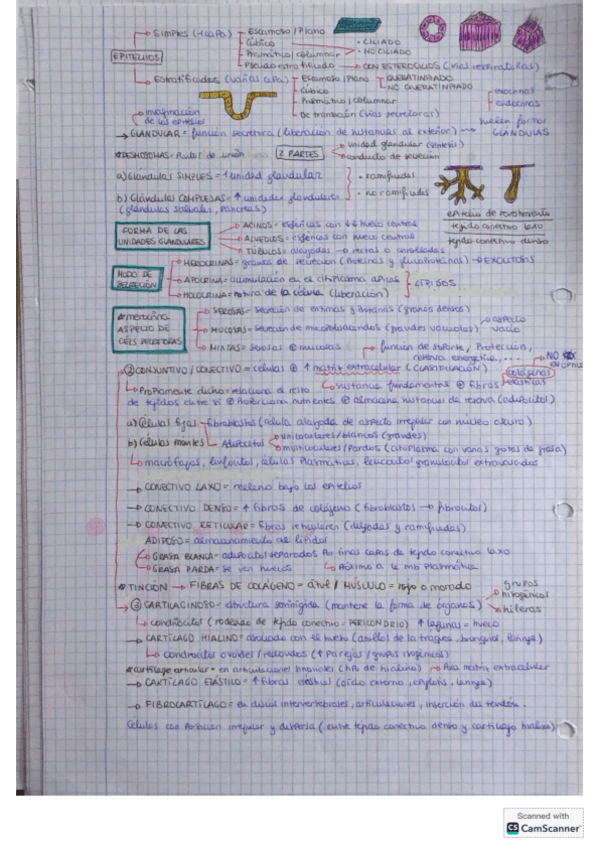 SIMPLES (→1 capa)
Escamoso / Plano
Cúbico
Prismático / columnar
Pseudo estratificado → CON ESTEREOCILIOS (vías respiratorias)
• CILIADO
• NO CILIADO
EPITELIOS
Estratificados (varias capas)
Escamoso / Plano
QUERATINIZADO
NO QUERATINIZADO
Cúbico
Prismático / columnar
De transición (vías secretoras)
exocrinas
endocrinas
suelen formar GLÁNDULAS
invaginación de los epitelios
→ GLANDULAR = función secretora (liberación de sustancias al exterior)
*DESMOSOMAS = de unión
2 PARTES
unidad glandular (síntesis)
conducto de secreción
a) Glándulas SIMPLES = 1 unidad glandular
b) Glándulas COMPLEJAS = ↑ unidades glandulares
(glándulas salivales, páncreas)
• ramificadas
• no ramificadas
epitelio de revestimiento
tejido conectivo laxo
tejido conectivo denso
FORMA DE LAS UNIDADES GLANDULARES
→ ACINOS = esféricas con hueco central
→ ALVEOLOS = esféricas con hueco central
→ TÚBULOS = alargadas → rectas o enrolladas
MODO DE SECRECIÓN
→ MEROCRINAS = gránulos de secreción (proteínas y glucoproteínas) → EXOCITOSIS
→ APOCRINA = acumulación en el citoplasma apical
→ HOLOCRINA = rotura de la célula (liberación)
LÍPIDOS
*merocrina
ASPECTO DE CÉLS SECRETORAS
→ SEROSAS = secreción de enzimas y proteínas (gránulos densos)
→ MUCOSAS = secreción de (grandes vacuolas) → aspecto vacío
→ MIXTAS = serosas ⊕ mucosas
función de soporte, protección, reserva energética, ...
② CONJUNTIVO / CONECTIVO = células ⊕ ↑ matriz extracelular (CLASIFICACIÓN)
sustancia fundamental ⊕ fibras
colágenas
elásticas
→ Propiamente dicho = relaciona el resto
de tejidos entre sí ⊕ Proporciona nutrientes ⊕ almacena sustancias de reserva (adipocitos)
a) Células fijas
fibroblastos (célula alargada de aspecto irregular con núcleo oscuro)
Adipocitos
uniloculares/blancos (grandes)
multiloculares/Pardos (citoplasma con varias gotas de grasa)
b) Células móviles
macrófagos, linfocitos, células plasmáticas, leucocitos granulocitos extravasados
→ CONECTIVO LAXO = relleno bajo los epitelios
→ CONECTIVO DENSO = ↑ fibras de colágeno (fibroblastos → fibrocitos)
→ CONECTIVO RETICULAR = fibras reticulares (delgadas y ramificadas)
ADIPOSO = almacenamiento de lípidos
→ GRASA BLANCA = adipocitos separados por finas capas de tejido conectivo laxo
→ GRASA PARDA = se ven núcleos → Próximo a la mb plasmática
*TINCIÓN → FIBRAS DE COLÁGENO = azul / MÚSCULO = rojo o morado
grupos isogénicos
hileras
③ CARTILAGINOSO = estructura semirrígida (mantiene la forma de órganos)
→ condrocitos (rodeados de tejido conectivo = PERICONDRIO) ↑ lagunas = hueco
→ CARTÍLAGO HIALINO = asociado con el hueso (anillos de la tráquea, bronquios, laringe)
→ condrocitos ovoides / redondos (↑ Parejas / grupos isogénicos)
*cartílago articular = en articulaciones sinoviales → Poca matriz extracelular
→ CARTÍLAGO ELÁSTICO = ↑ fibras elásticas (oído externo, epiglotis, laringe)
→ FIBROCARTÍLAGO = en discos intervertebrales, articulaciones, inserción del tendón.
Células con posición irregular y diversa (entre tejido conectivo denso y cartílago hialino)
Scanned with
CS CamScanner